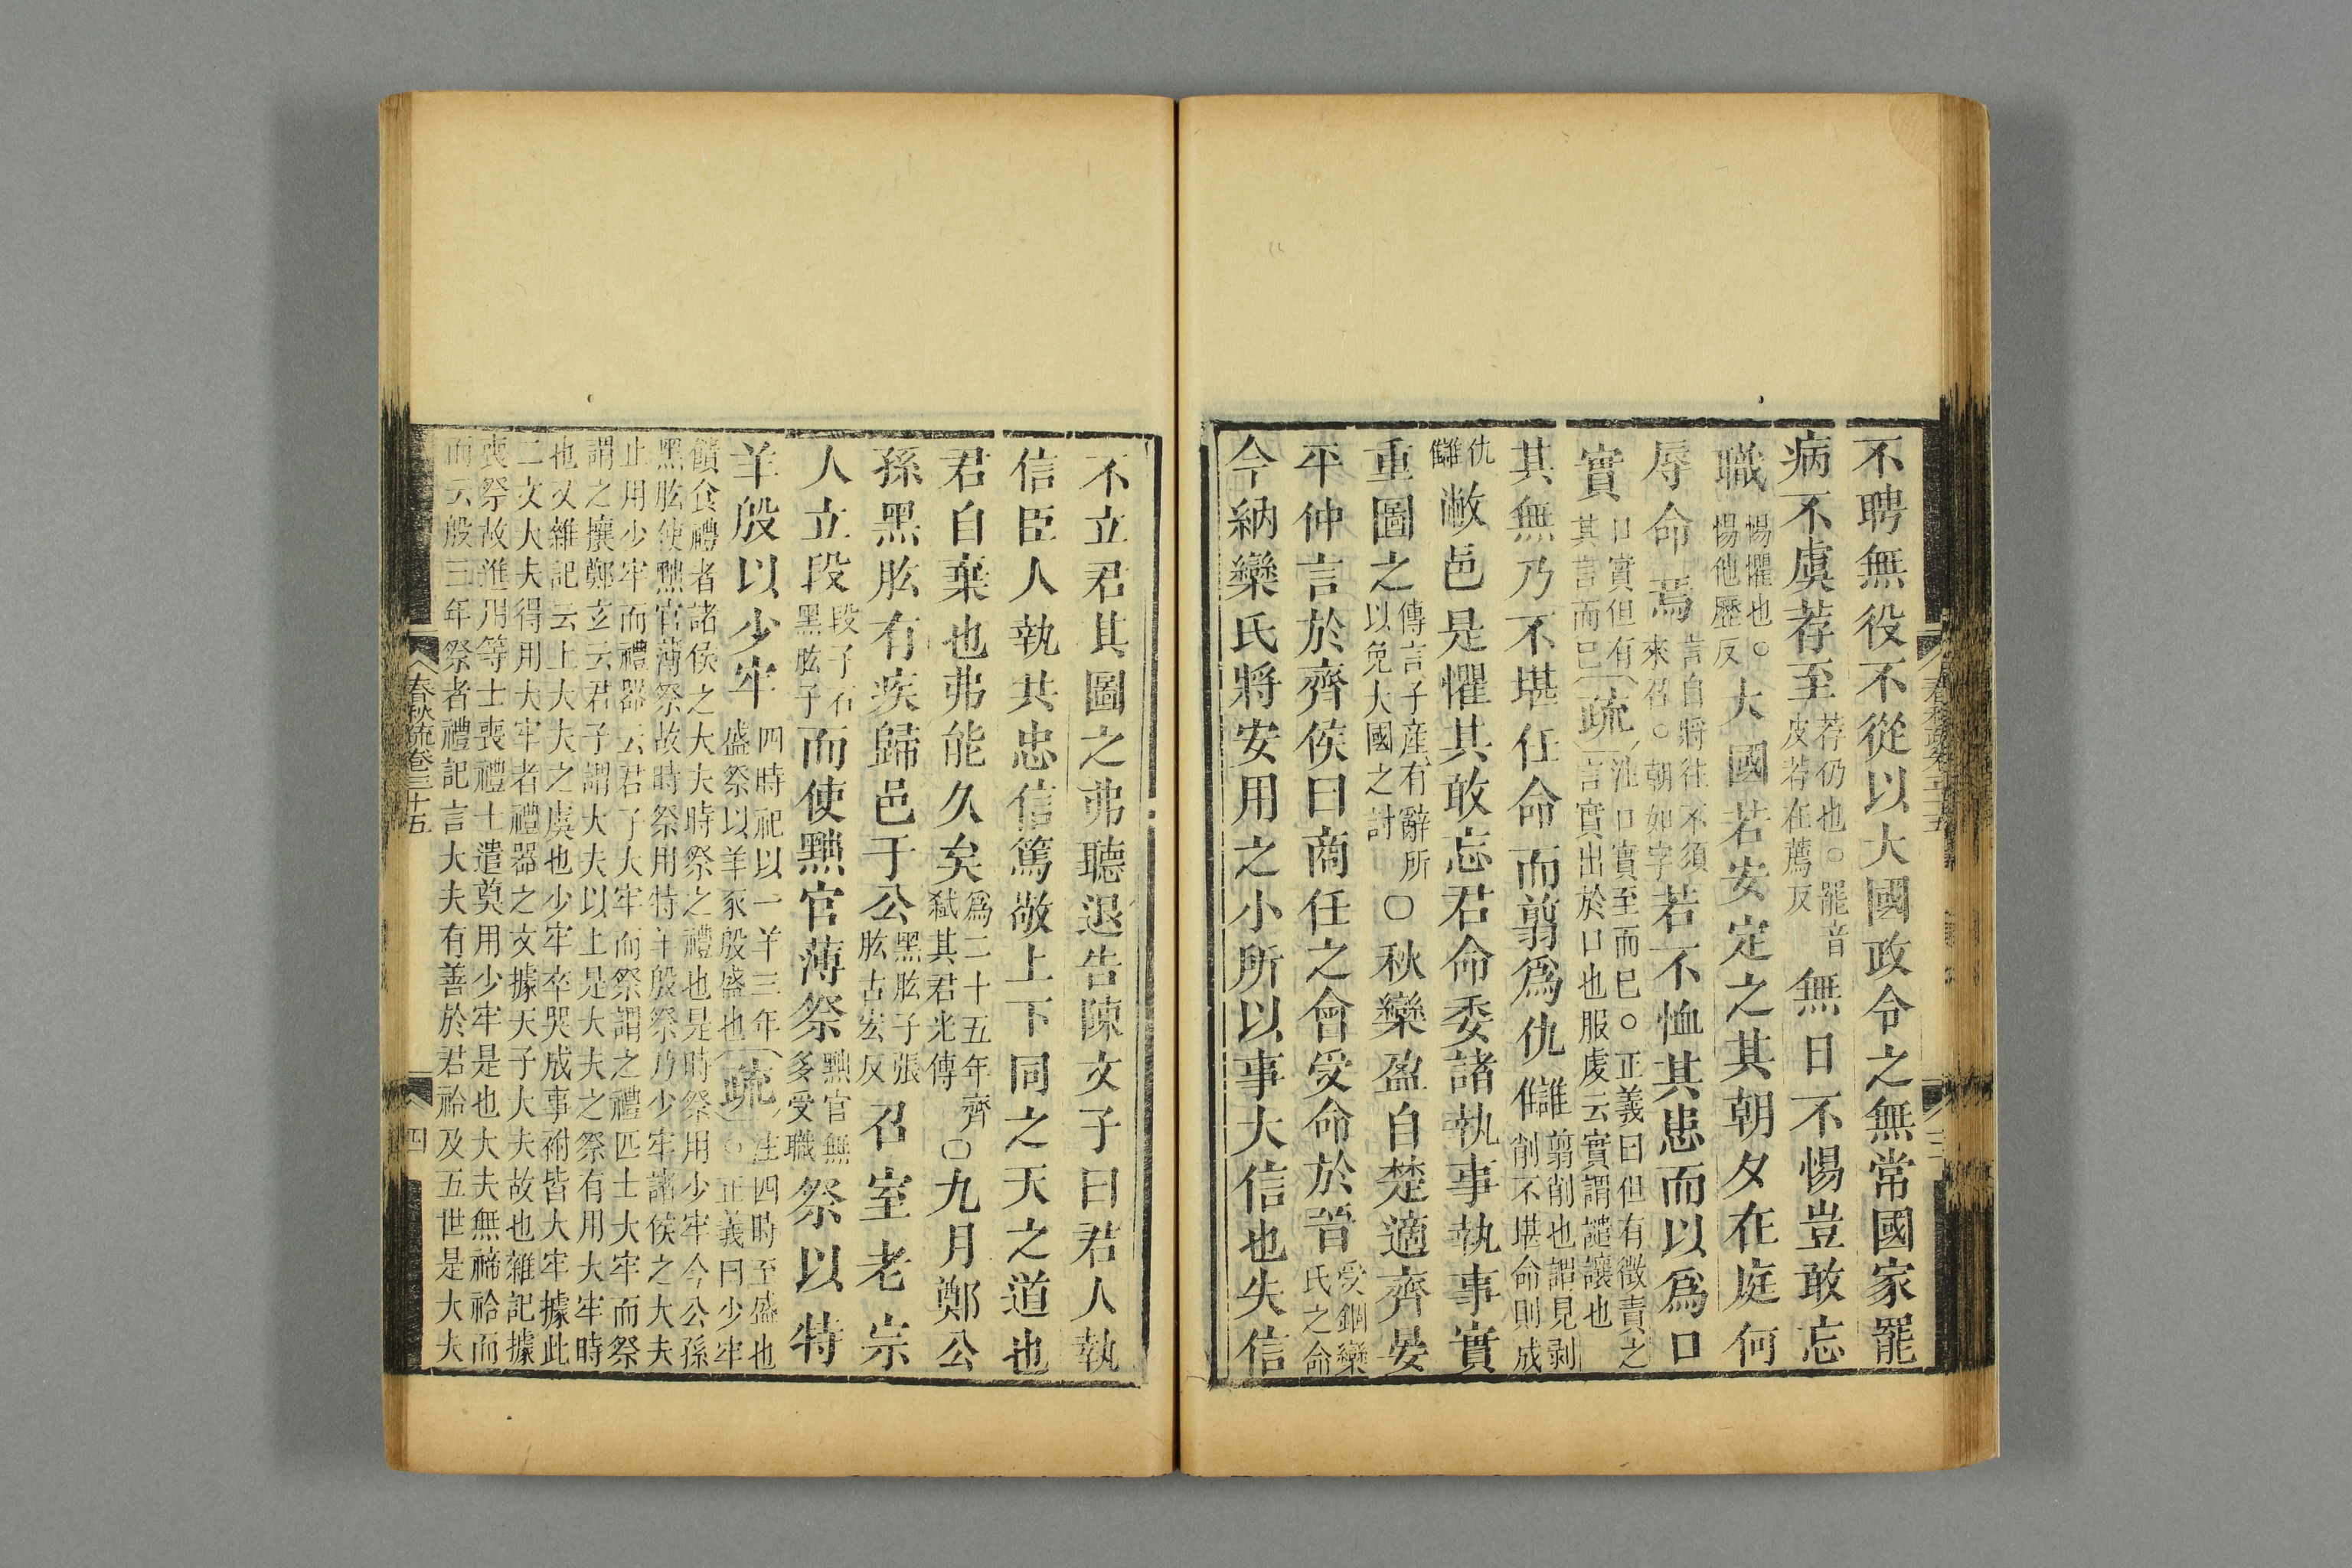 不聘無役不從以大國政令之無常國家罷
病不虞荐至荐仍也○罷音皮荐在薦反無日不惕豈敢忘
職惕懼也○惕他歷反大國若安定之其朝夕在庭何
辱命焉言自將往不須來召○朝如字若不恤其患而以爲口
實口實但有其言而已疏注口實至而已○正義曰但有徵責之言實出於口也服虔云實謂譴讓也
其無乃不堪任命而翦爲仇讎翦削也謂見剥削不堪命則成
仇讎敝邑是懼其敢忘君命委諸執事執事實
重圖之傳言子產有辭所以免大國之討○秋欒盈自楚適齊晏
平仲言於齊侯曰商任之會受命於晉受錮欒氏之命
今納欒氏將安用之小所以事大信也失信
不立君其圖之弗聽退告陳文子曰君人執
信臣人執共忠信篤敬上下同之天之道也
君自棄也弗能久矣爲二十五年齊弑其君光傳○九月鄭公
孫黑肱有疾歸邑于公黑肱子張肱古宏反召室老宗
人立段段子石黑肱子而使黜官薄祭黜官無多受職祭以特
羊殷以少牢四時祀以一羊三年盛祭以羊豕殷盛也疏注四時至盛也○正義曰少牢
饋食禮者諸侯之大夫時祭之禮也是時祭用少牢今公孫
黑肱使黜官薄祭故時祭用特羊殷祭乃少牢諸侯之大夫
止用少牢而禮器云君子大牢而祭謂之禮匹士大牢而祭
謂之攘鄭玄云君子謂大夫以上是大夫之祭有用大牢時
也又雜記云上大夫之虞也少牢卒哭成事祔皆大牢據此
二文大夫得用大牢者禮器之文據天子大夫故也雜記據
喪祭故進用等士喪禮士遣奠用少牢是也大夫無禘祫而
而云殷三年祭者禮記言大夫有善於君祫及五世是大夫
春秋疏卷三十五
四